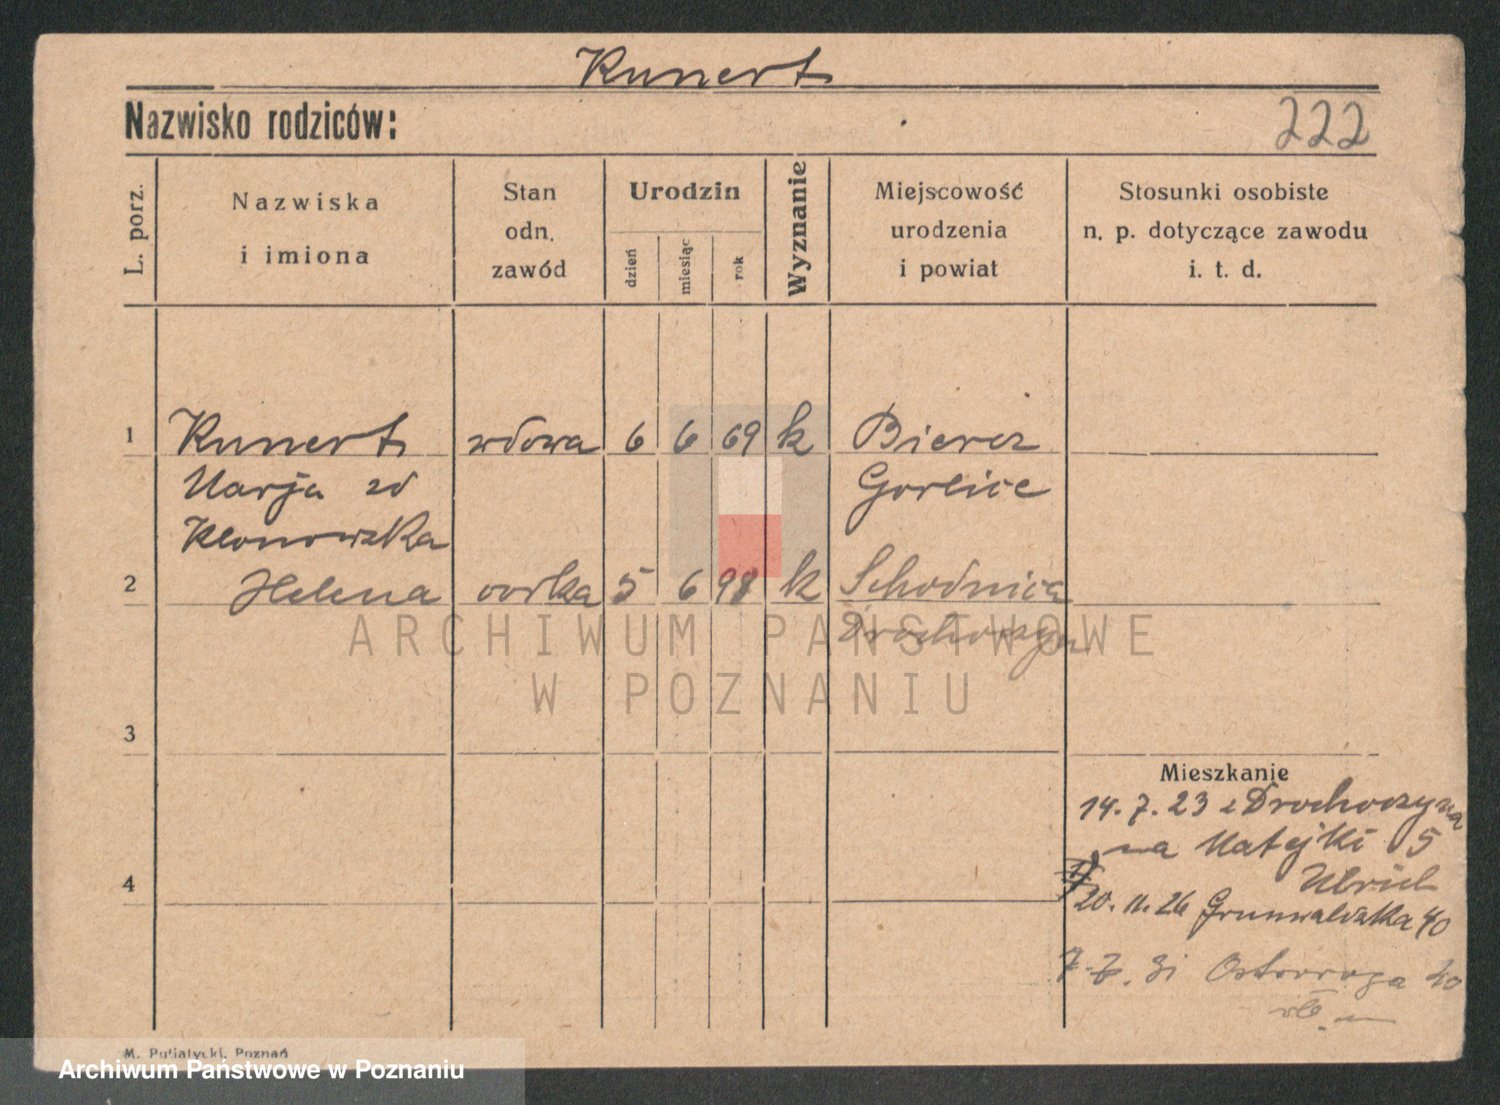 Kunert
Nazwisko rodziców:
222
L. porz.
Nazwiska
i imiona
Stan
odn.
zawód
Urodzin
dzień
miesiąc
rok
Wyznanie
Miejscowość
urodzenia
i powiat
Stosunki osobiste
n. p. dotyczące zawodu
i. t. d.
1 Kunert wdowa 6 6 69 k Biecz
Marja zd Gorlice
Klonowska
2 Helena córka 5 6 98 k Schodnica
Drohoczyn
ARCHIWUM PAŃSTWOWE
W POZNANIU
3
Mieszkanie
14.7.23 z Drohoczyna
na Matejki 5
4
Ulrich
20.11.26 Grunwaldzka 40
31 Ostroroga
M. Putiatycki, Poznań
Archiwum Państwowe w Poznaniu